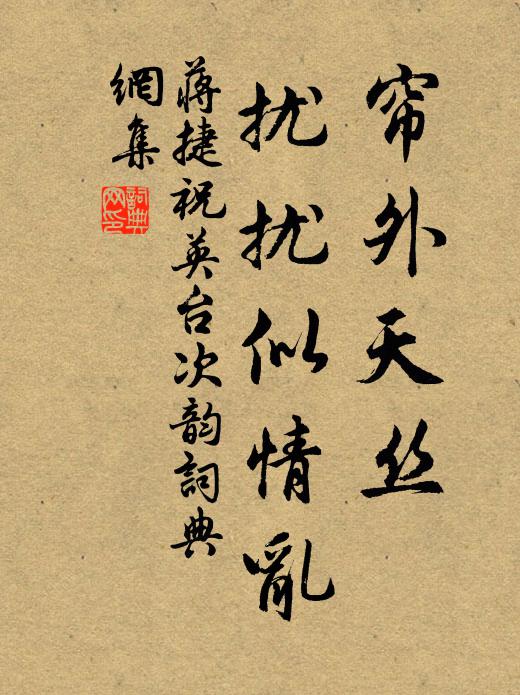 帘外天丝
扰扰似情亂
蒋捷祝英台次韵詞典
網集
詞典
网印